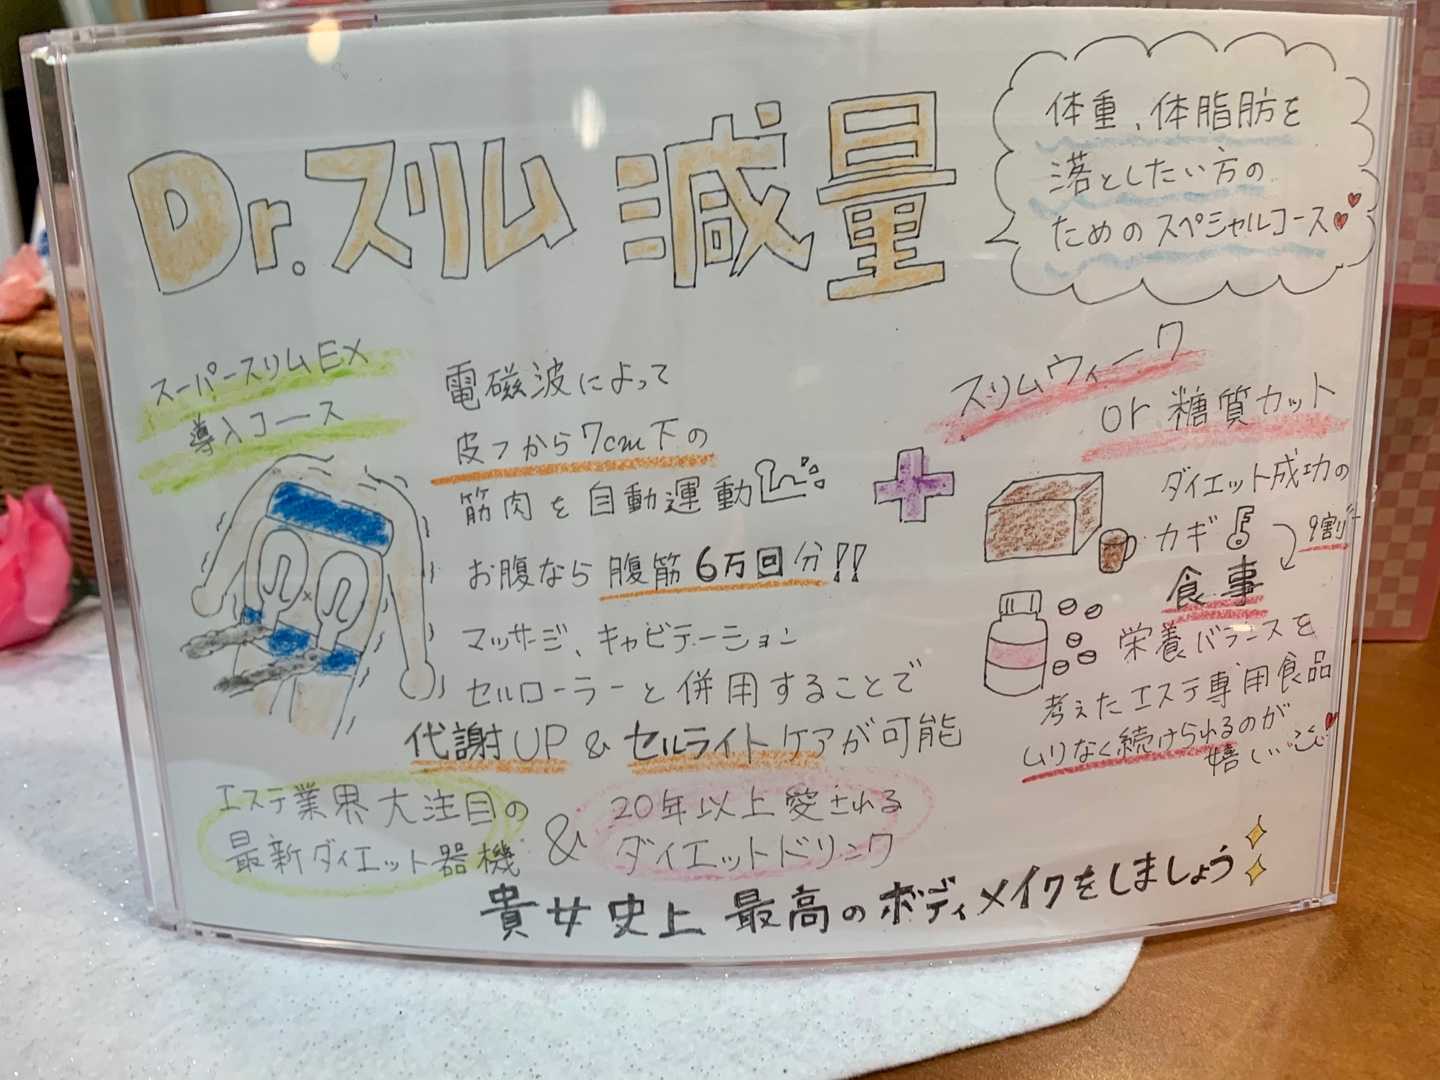 Dr.スリム 減量
体重、体脂肪を
落としたい方の
ためのスペシャルコース
スーパースリムEX
導入コース
電磁波によって
皮フから7cm下の
筋肉を自動運動
お腹なら腹筋6万回分!!
マッサージ、キャビテーション
セルローラーと併用することで
代謝UP & セルライトケアが可能
+
スリムウィーク
or 糖質カット
ダイエット成功の
カギ
9割
食事
栄養バランスを
考えたエステ専用食品
ムリなく続けられるのが
嬉しい
エステ業界大注目の
最新ダイエット器機
&
20年以上愛される
ダイエットドリンク
貴女史上 最高のボディメイクをしましょう